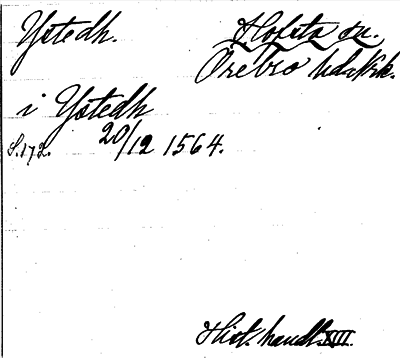 Ystedh. Hofsta sn.
Örebro hd. Nrk.
i Ystedh
S. 172. 20/12 1564.
Hist. handl. XIII.